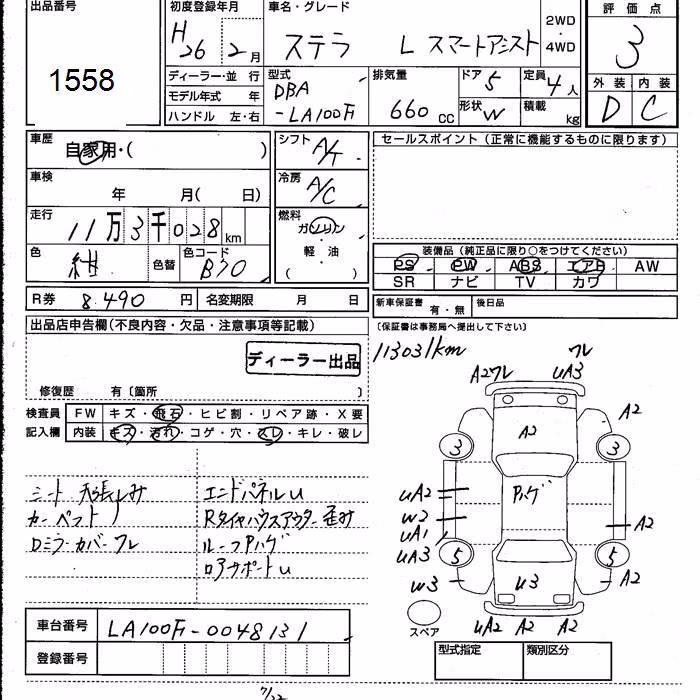 出品番号
1558
初度登録年月
H 26 2月
車名・グレード
ステラ L スマートアシスト
2WD
・
4WD
評価点
3
外装 内装
D C
ディーラー・並行
モデル年式 年
ハンドル 左・右
型式
DBA
-LA100F
排気量
660cc
ドア 5
定員 4人
形状 W
積載 kg
車歴
自家用・( )
シフト A/T
セールスポイント(正常に機能するものに限ります)
車検
年 月( 日)
冷房 A/C
走行
11万3千028km
燃料
ガソリン
軽・油
( )
色
紺
色替
色コード
B70
装備品(純正品に限り○をつけてください)
PS PW ABS エアB AW
SR ナビ TV カワ
R券 8.490円 名変期限 月 日
新車保証書 有・無 後日品
出品店申告欄(不良内容・欠品・注意事項等記載)
(保証書は事務局へ提出して下さい)
ディーラー出品
113031km
修復歴 有〔箇所 〕
検査員
記入欄
FW キズ・飛石・ヒビ割・リペア跡・X要
内装 キズ・汚れ・コゲ・穴・スレ・キレ・破レ
シート 天張シミ
カーペット
Dミラーカバーワレ
エンドパネルU
Rタイヤハウスアウター歪み
ルーフPハゲ
ロアサポートU
A2ワレ
ワレ
UA3
A2
A2
3
3
UA2
Pハゲ
W2
UA1
A2
UA3
5
5
W3
U3
A2
スペア
UA2 A2 A2
車台番号 LA100F-0048131
登録番号
型式指定 類別区分
7/22